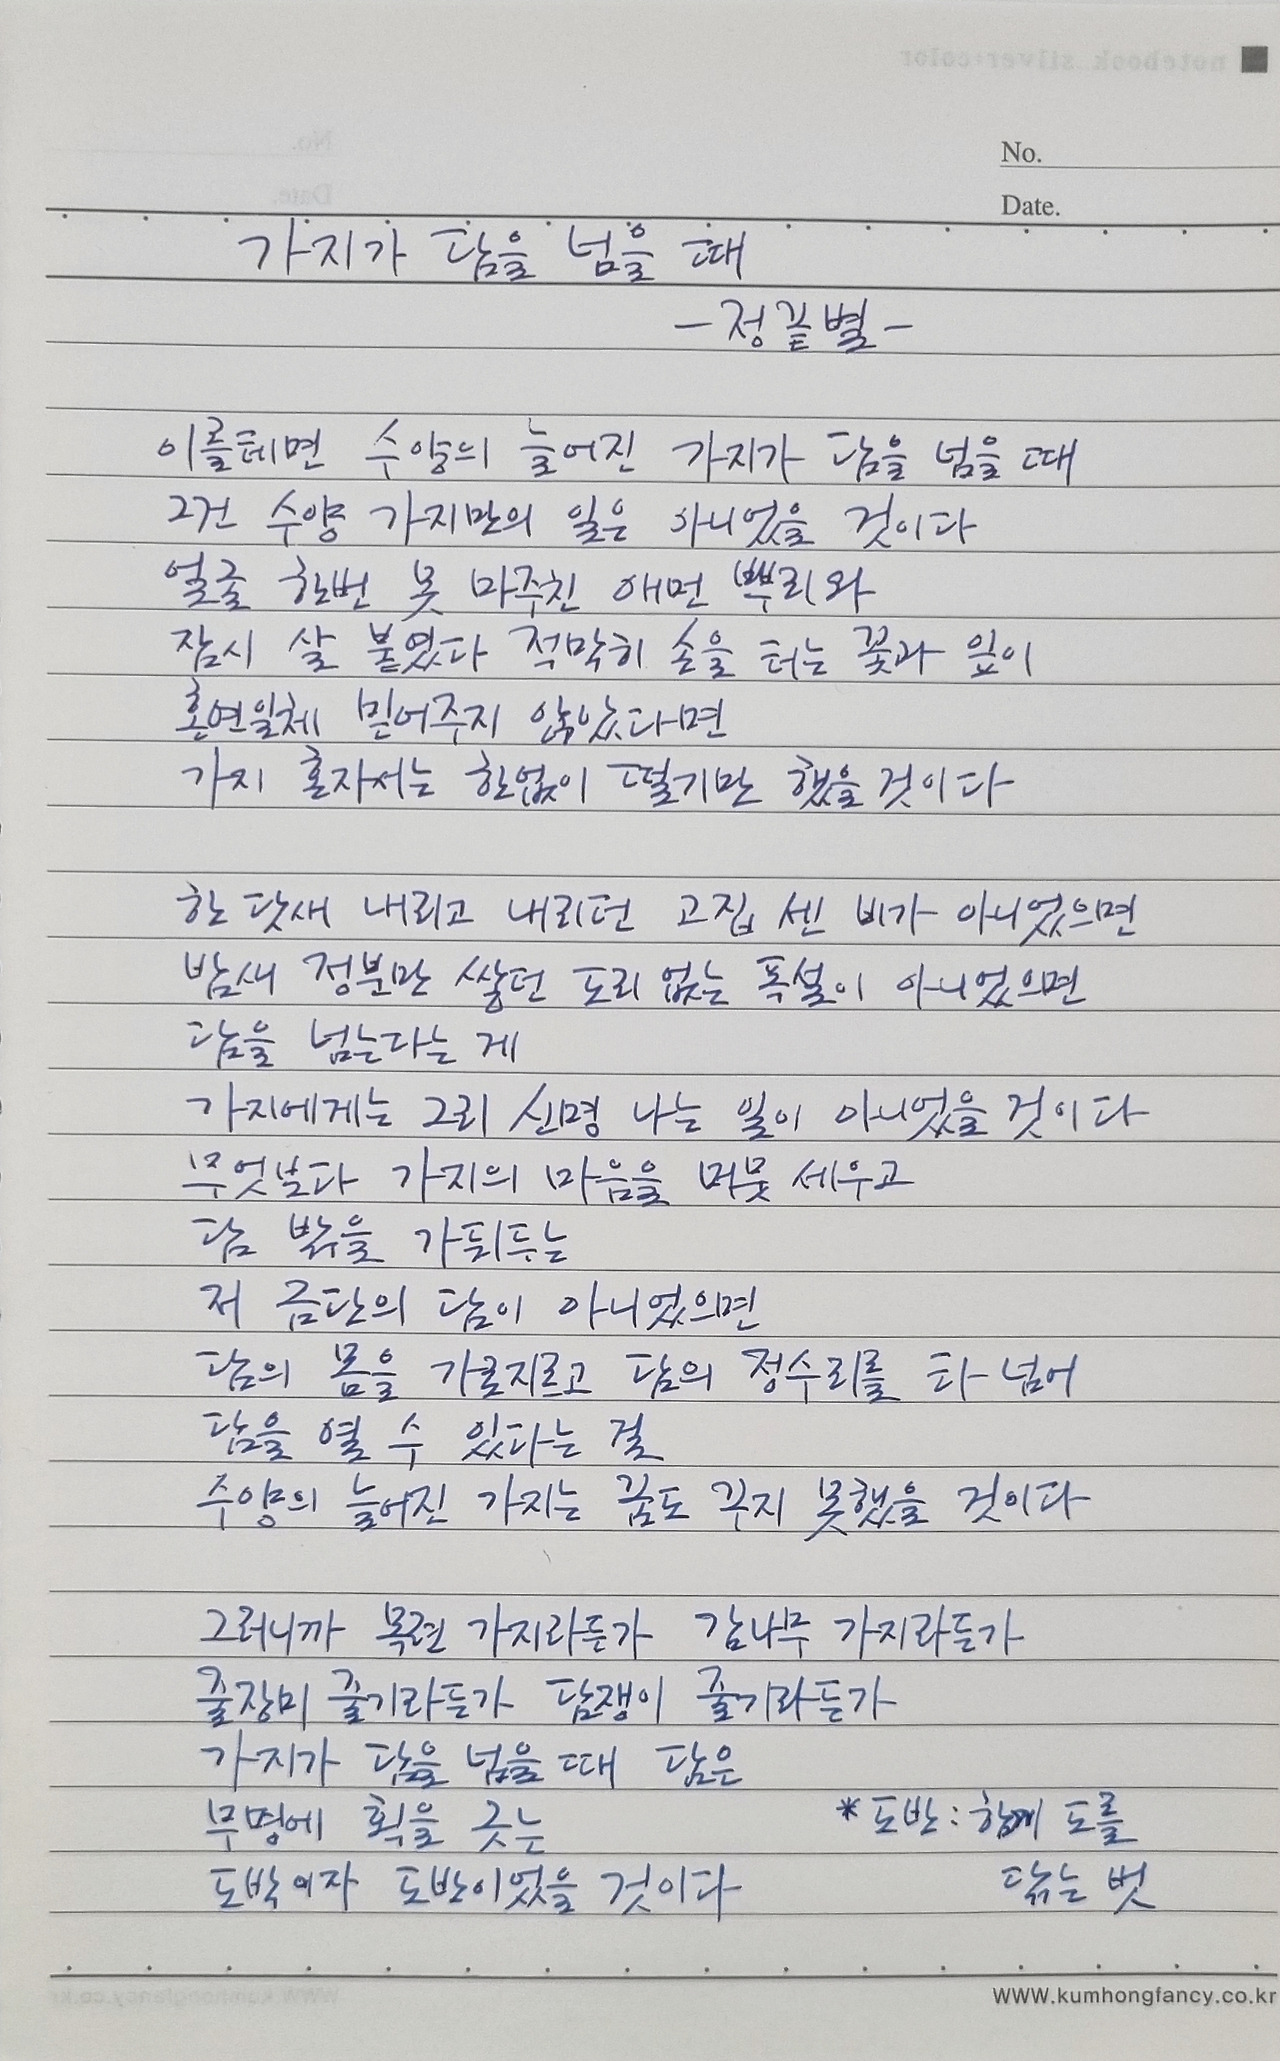 notebook silver:color
No.
Date.
가지가 담을 넘을 때
-정끝별-
이를테면 수양의 늘어진 가지가 담을 넘을 때
그건 수양 가지만의 일은 아니었을 것이다
얼굴 한번 못 마주친 애먼 뿌리와
잠시 살 붙였다 적막히 손을 터는 꽃과 잎이
혼연일체 믿어주지 않았다면
가지 혼자서는 한없이 떨기만 했을 것이다
한 닷새 내리고 내리던 고집 센 비가 아니었으면
밤새 정분만 쌓던 도리 없는 폭설이 아니었으면
담을 넘는다는 게
가지에게는 그리 신명 나는 일이 아니었을 것이다
무엇보다 가지의 마음을 머뭇 세우고
담 밖을 가둬두는
저 금단의 담이 아니었으면
담의 몸을 가로지르고 담의 정수리를 타 넘어
담을 열 수 있다는 걸
수양의 늘어진 가지는 꿈도 꾸지 못했을 것이다
그러니까 목련 가지라든가 감나무 가지라든가
줄장미 줄기라든가 담쟁이 줄기라든가
가지가 담을 넘을 때 담은
무명에 획을 긋는
도박이자 도반이었을 것이다
*도반: 함께 도를
닦는 벗
WWW.kumhongfancy.co.kr